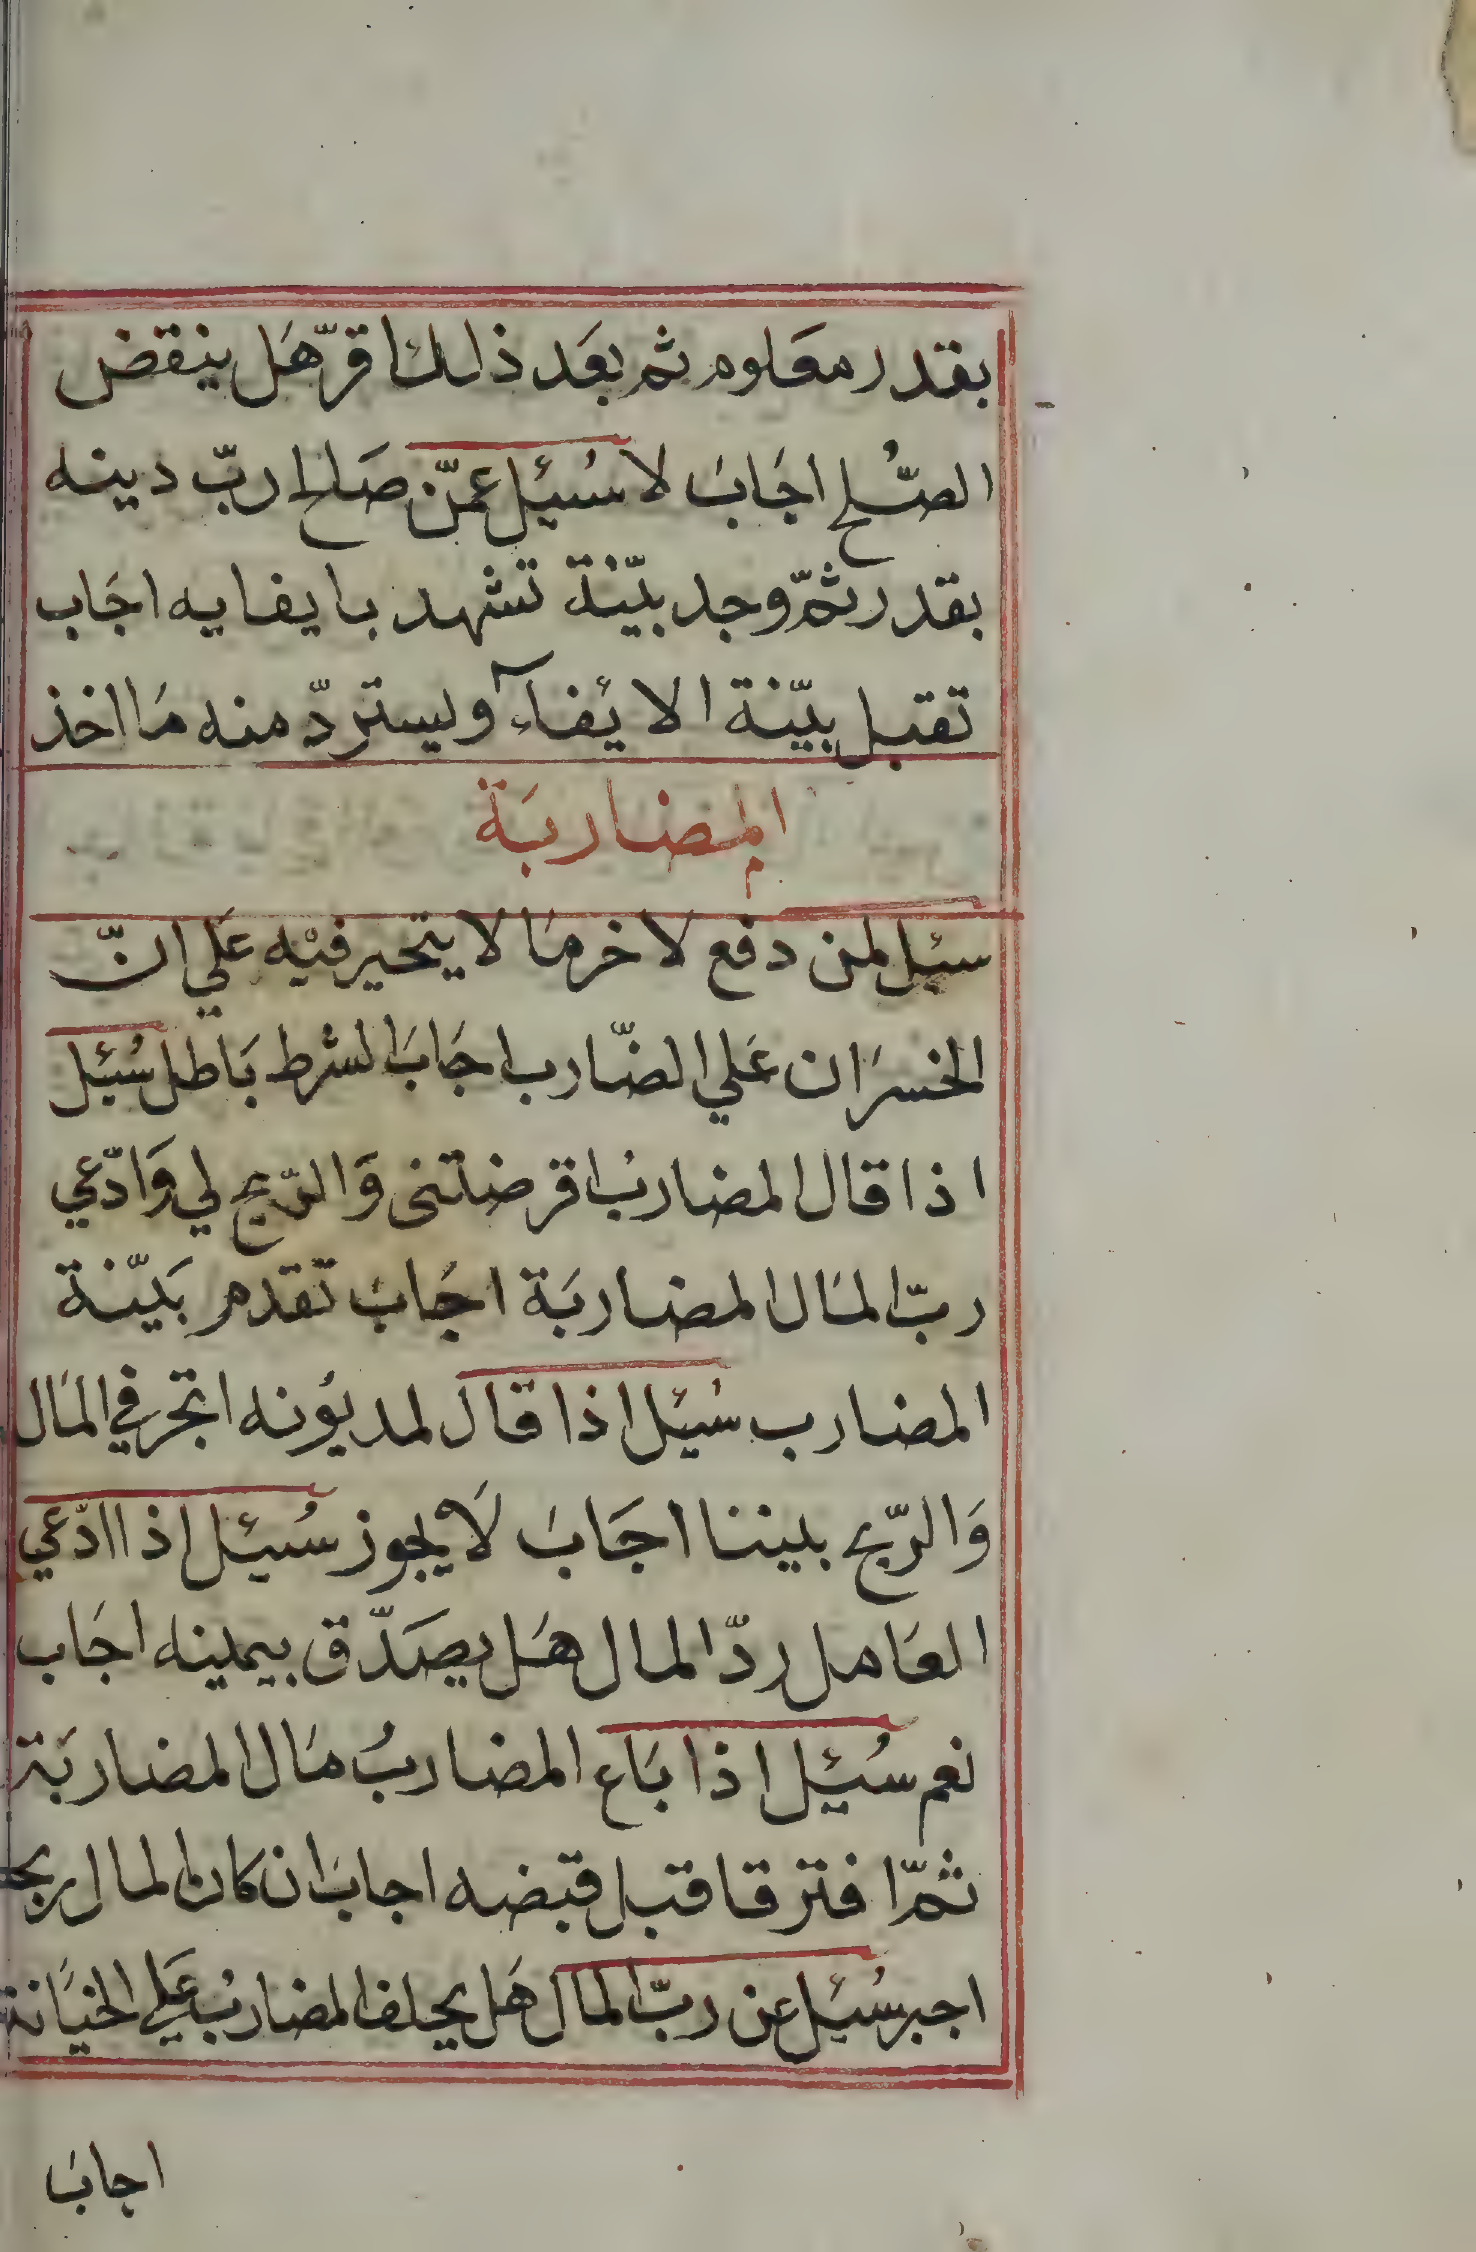 بقدر معلوم ثم بعد ذلك اقرّ هل ينقض
الصّلح اجاب لا سُئِل عمّن صالح ربّ دينه
بقدر ثمّ وجد بيّنة تشهد بايفايه اجاب
تقبل بيّنة الايفآء ويستردّ منه ما اخذ
المضاربة
سئل لمن دفع لاخر ما لا يتحير فيه علي انّ
الخسران علي الضّارب اجاب الشرط باطل سُئِل
اذا قال المضارب اقرضتنى والرّبح لي وادّعي
ربّ المال المضاربة اجاب تقدم بيّنة
المضارب سُئِل اذا قال لمديونه اتجر في المال
والرّبح بيننا اجاب لا يجوز سُئِل اذا ادّعي
العامل ردّ المال هل يصدّق بيمينه اجاب
نعم سُئِل اذا باع المضارب مال المضاربة
ثمّ افترقا قبل قبضه اجاب ان كان المال ربح
اجبر سُئِل عن ربّ المال هل يحلف المضارب علي الخيانة
اجاب